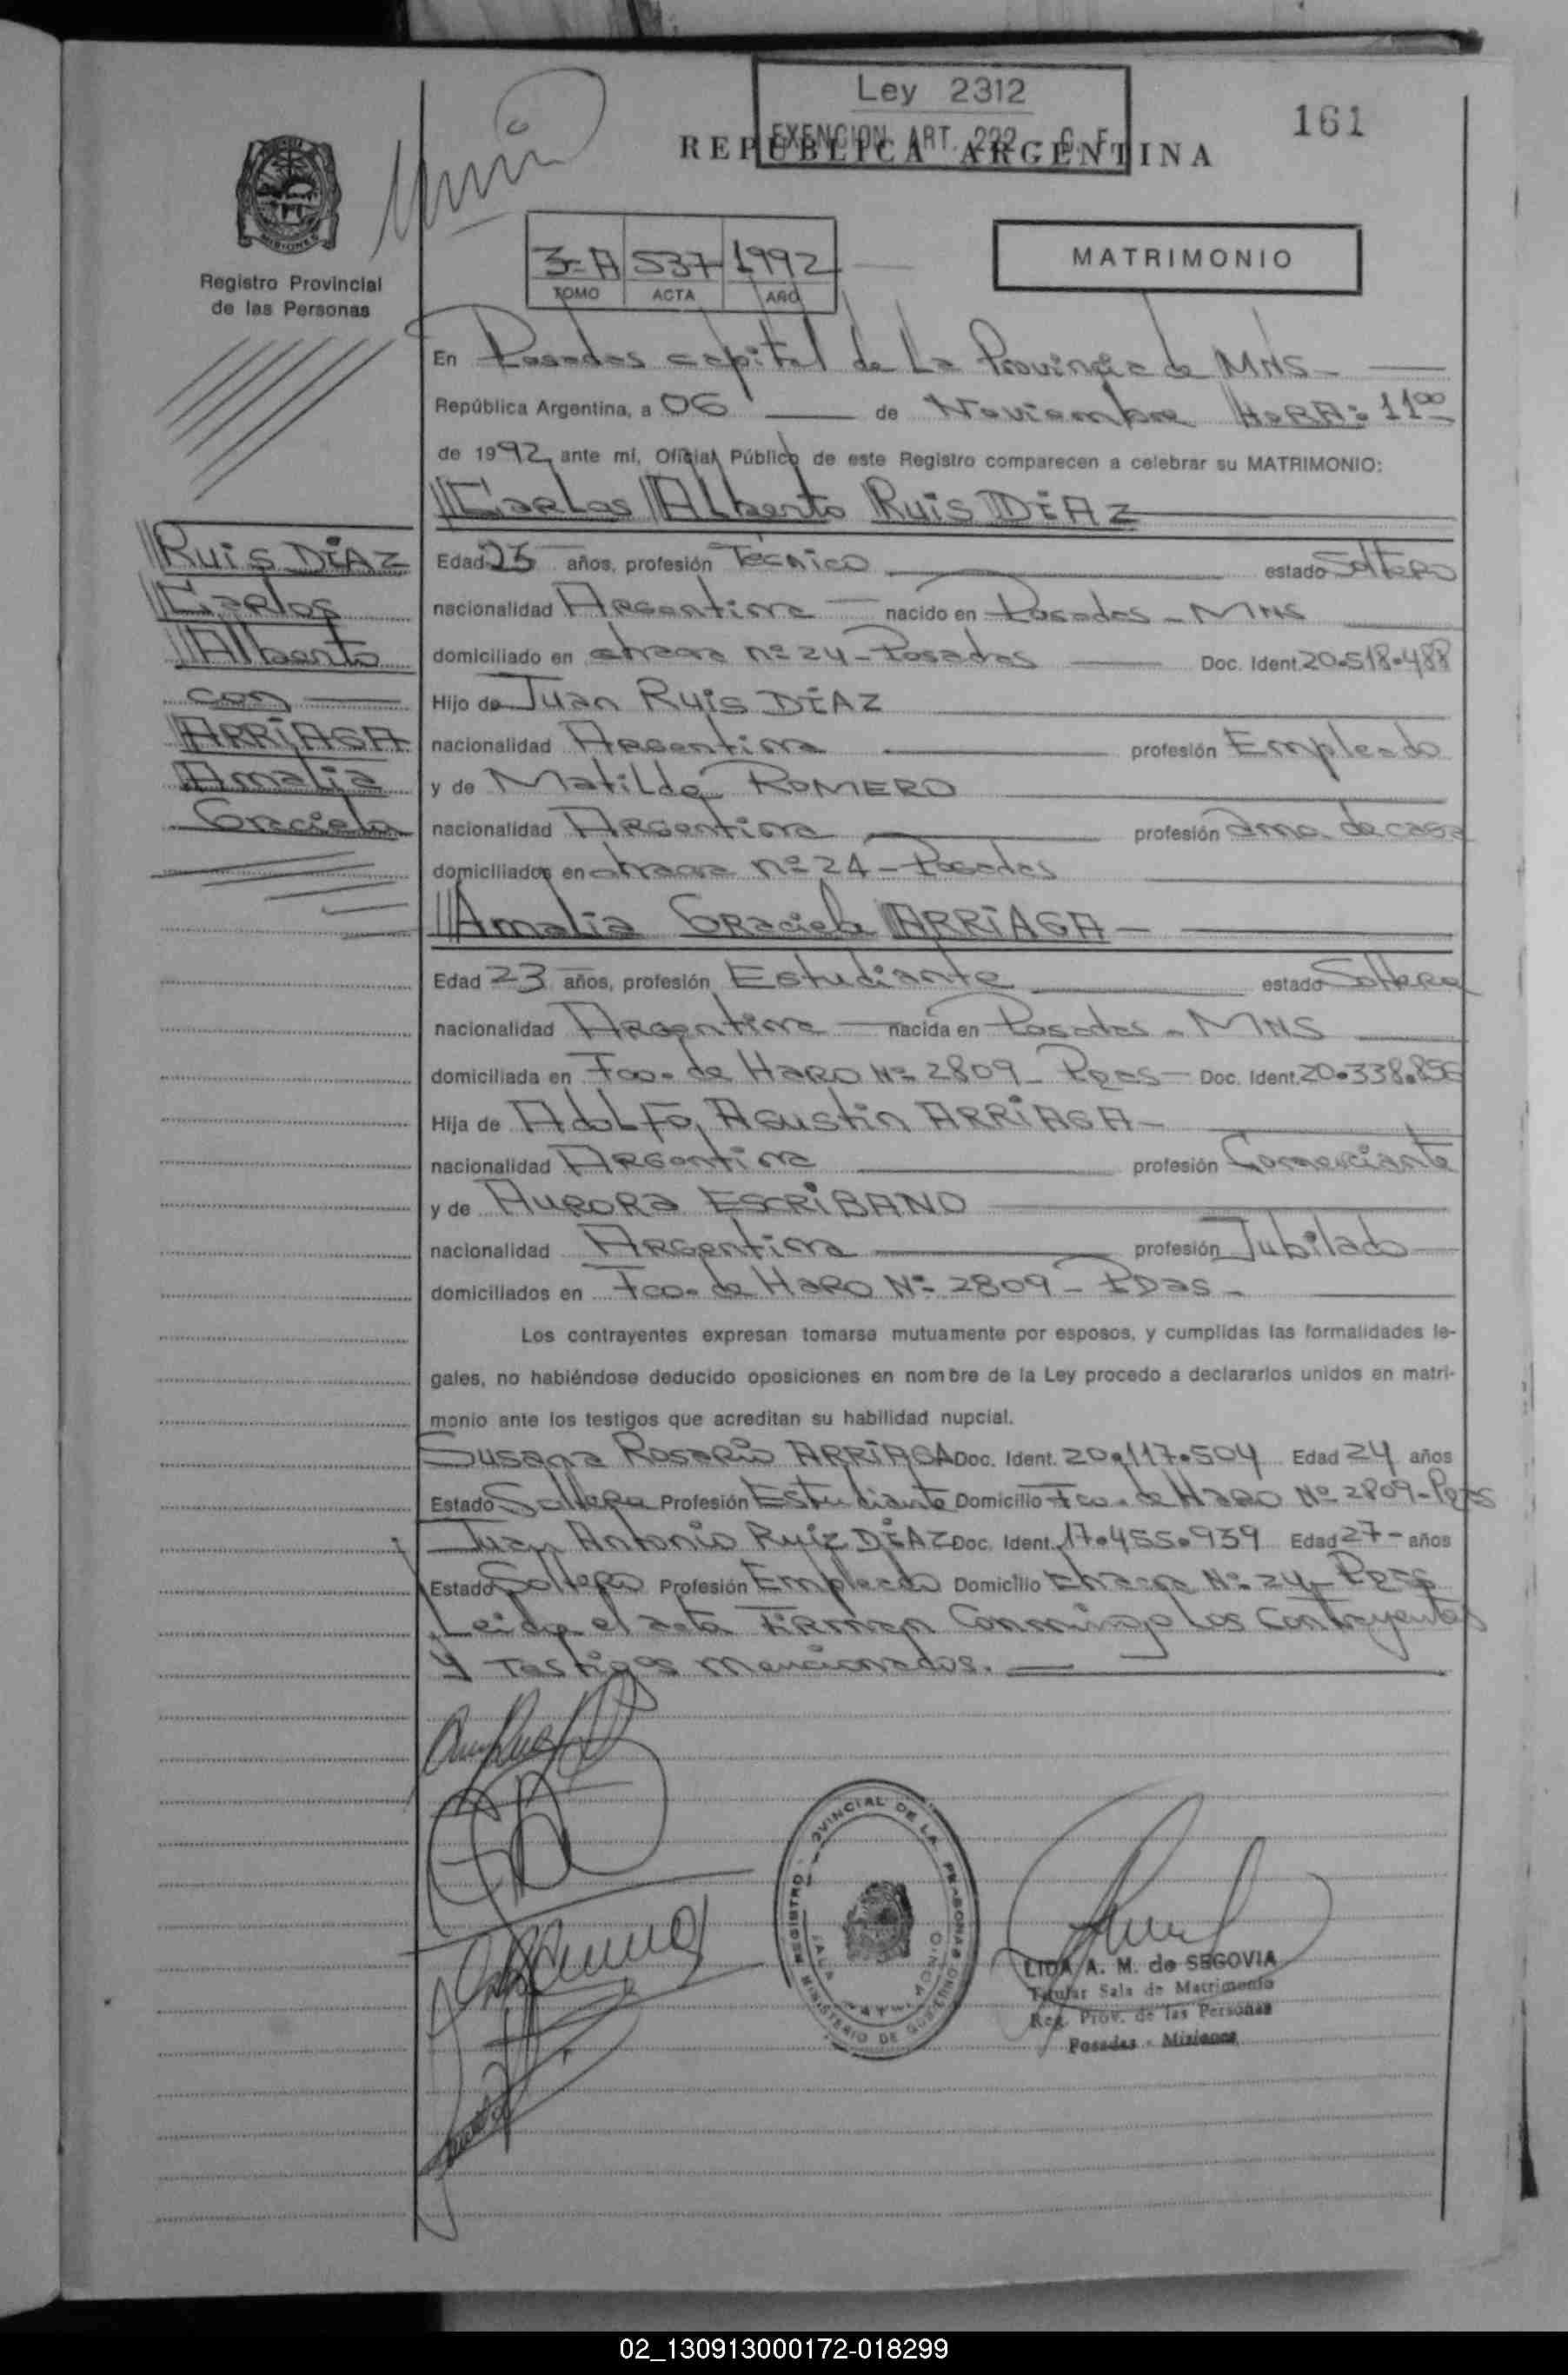 Ley 2312
EXENCION ART. 222 - C. F.
161
REPUBLICA ARGENTINA
MISIONES
Registro Provincial
de las Personas
3-A 537 1992
TOMO ACTA AÑO
MATRIMONIO
En Posadas capital de La Provincia de MNS-
República Argentina, a 06 de Noviembre HORA: 11 00
de 1992, ante mí, Oficial Público de este Registro comparecen a celebrar su MATRIMONIO:
Carlos Alberto Ruis DÍAZ
Ruis DÍAZ
Carlos
Alberto
con
ARRIAGA
Amalia
Graciela
Edad 25 años, profesión Técnico estado Soltero
nacionalidad Argentina nacido en Posadas - MNS
domiciliado en chacra nº 24 - Posadas Doc. Ident. 20.518.488
Hijo de Juan Ruis DÍAZ
nacionalidad Argentina profesión Empleado
y de Matilde ROMERO
nacionalidad Argentina profesión ama de casa
domiciliados en chacra nº 24 - Posadas
Amalia Graciela ARRIAGA -
Edad 23 años, profesión Estudiante estado Soltera
nacionalidad Argentina nacida en Posadas - MNS
domiciliada en Fco. de HARO Nº 2809 - Pdas - Doc. Ident. 20.338.856
Hija de Adolfo Agustin ARRIAGA -
nacionalidad Argentina profesión Comerciante
y de AURORA ESCRIBANO
nacionalidad Argentina profesión Jubilado
domiciliados en Fco. de HARO Nº 2809 - PDas -
Los contrayentes expresan tomarse mutuamente por esposos, y cumplidas las formalidades le-
gales, no habiéndose deducido oposiciones en nombre de la Ley procedo a declararlos unidos en matri-
monio ante los testigos que acreditan su habilidad nupcial.
Susana Rosario ARRIAGA Doc. Ident. 20.117.504 Edad 24 años
Estado Soltera Profesión Estudiante Domicilio Fco. de HARO Nº 2809 - Pdas
Juan Antonio Ruiz DÍAZ Doc. Ident. 17.455.939 Edad 27 - años
Estado Soltero Profesión Empleado Domicilio Chacra Nº 24 - Pdas
Leida el acta Firman Conmigo los Contrayentes
y Testigos mencionados.
REGISTRO PROVINCIAL DE LA PERSONAS
SALA MATRIMONIO
MINISTERIO DE GOBIERNO
LIDA A. M. de SEGOVIA
Titular Sala de Matrimonio
Reg. Prov. de las Personas
Posadas - Misiones
02_130913000172-018299